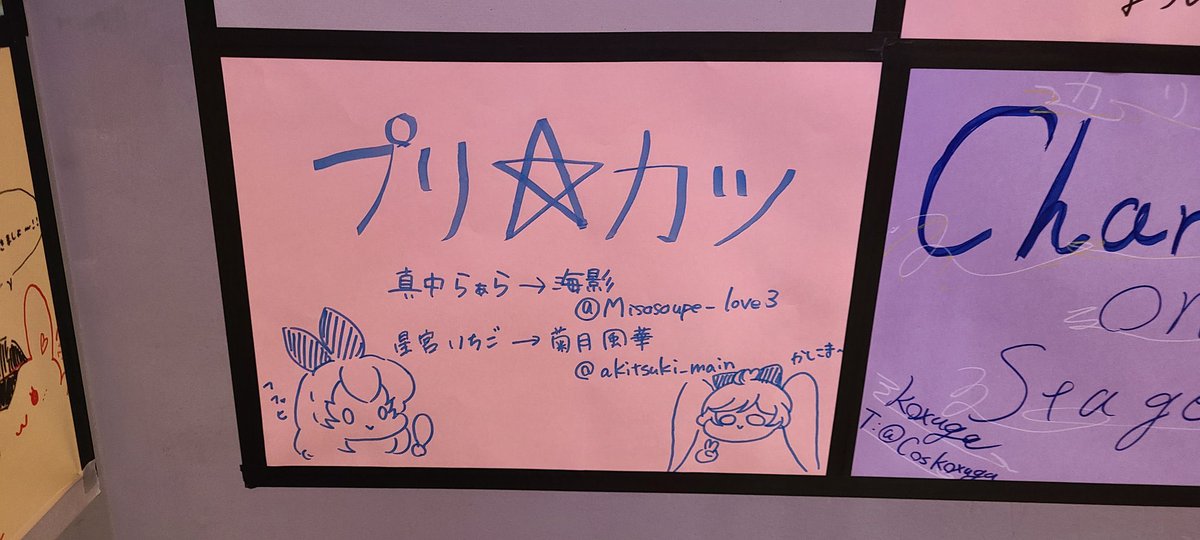 プリ☆カツ
真中らぁら→海影
@Misosoupe_love3
星宮いちご→菊月風華
@akitsuki_main
かしこま〜
Char
on
Stage
Koxuga
T:@Coskoxuga